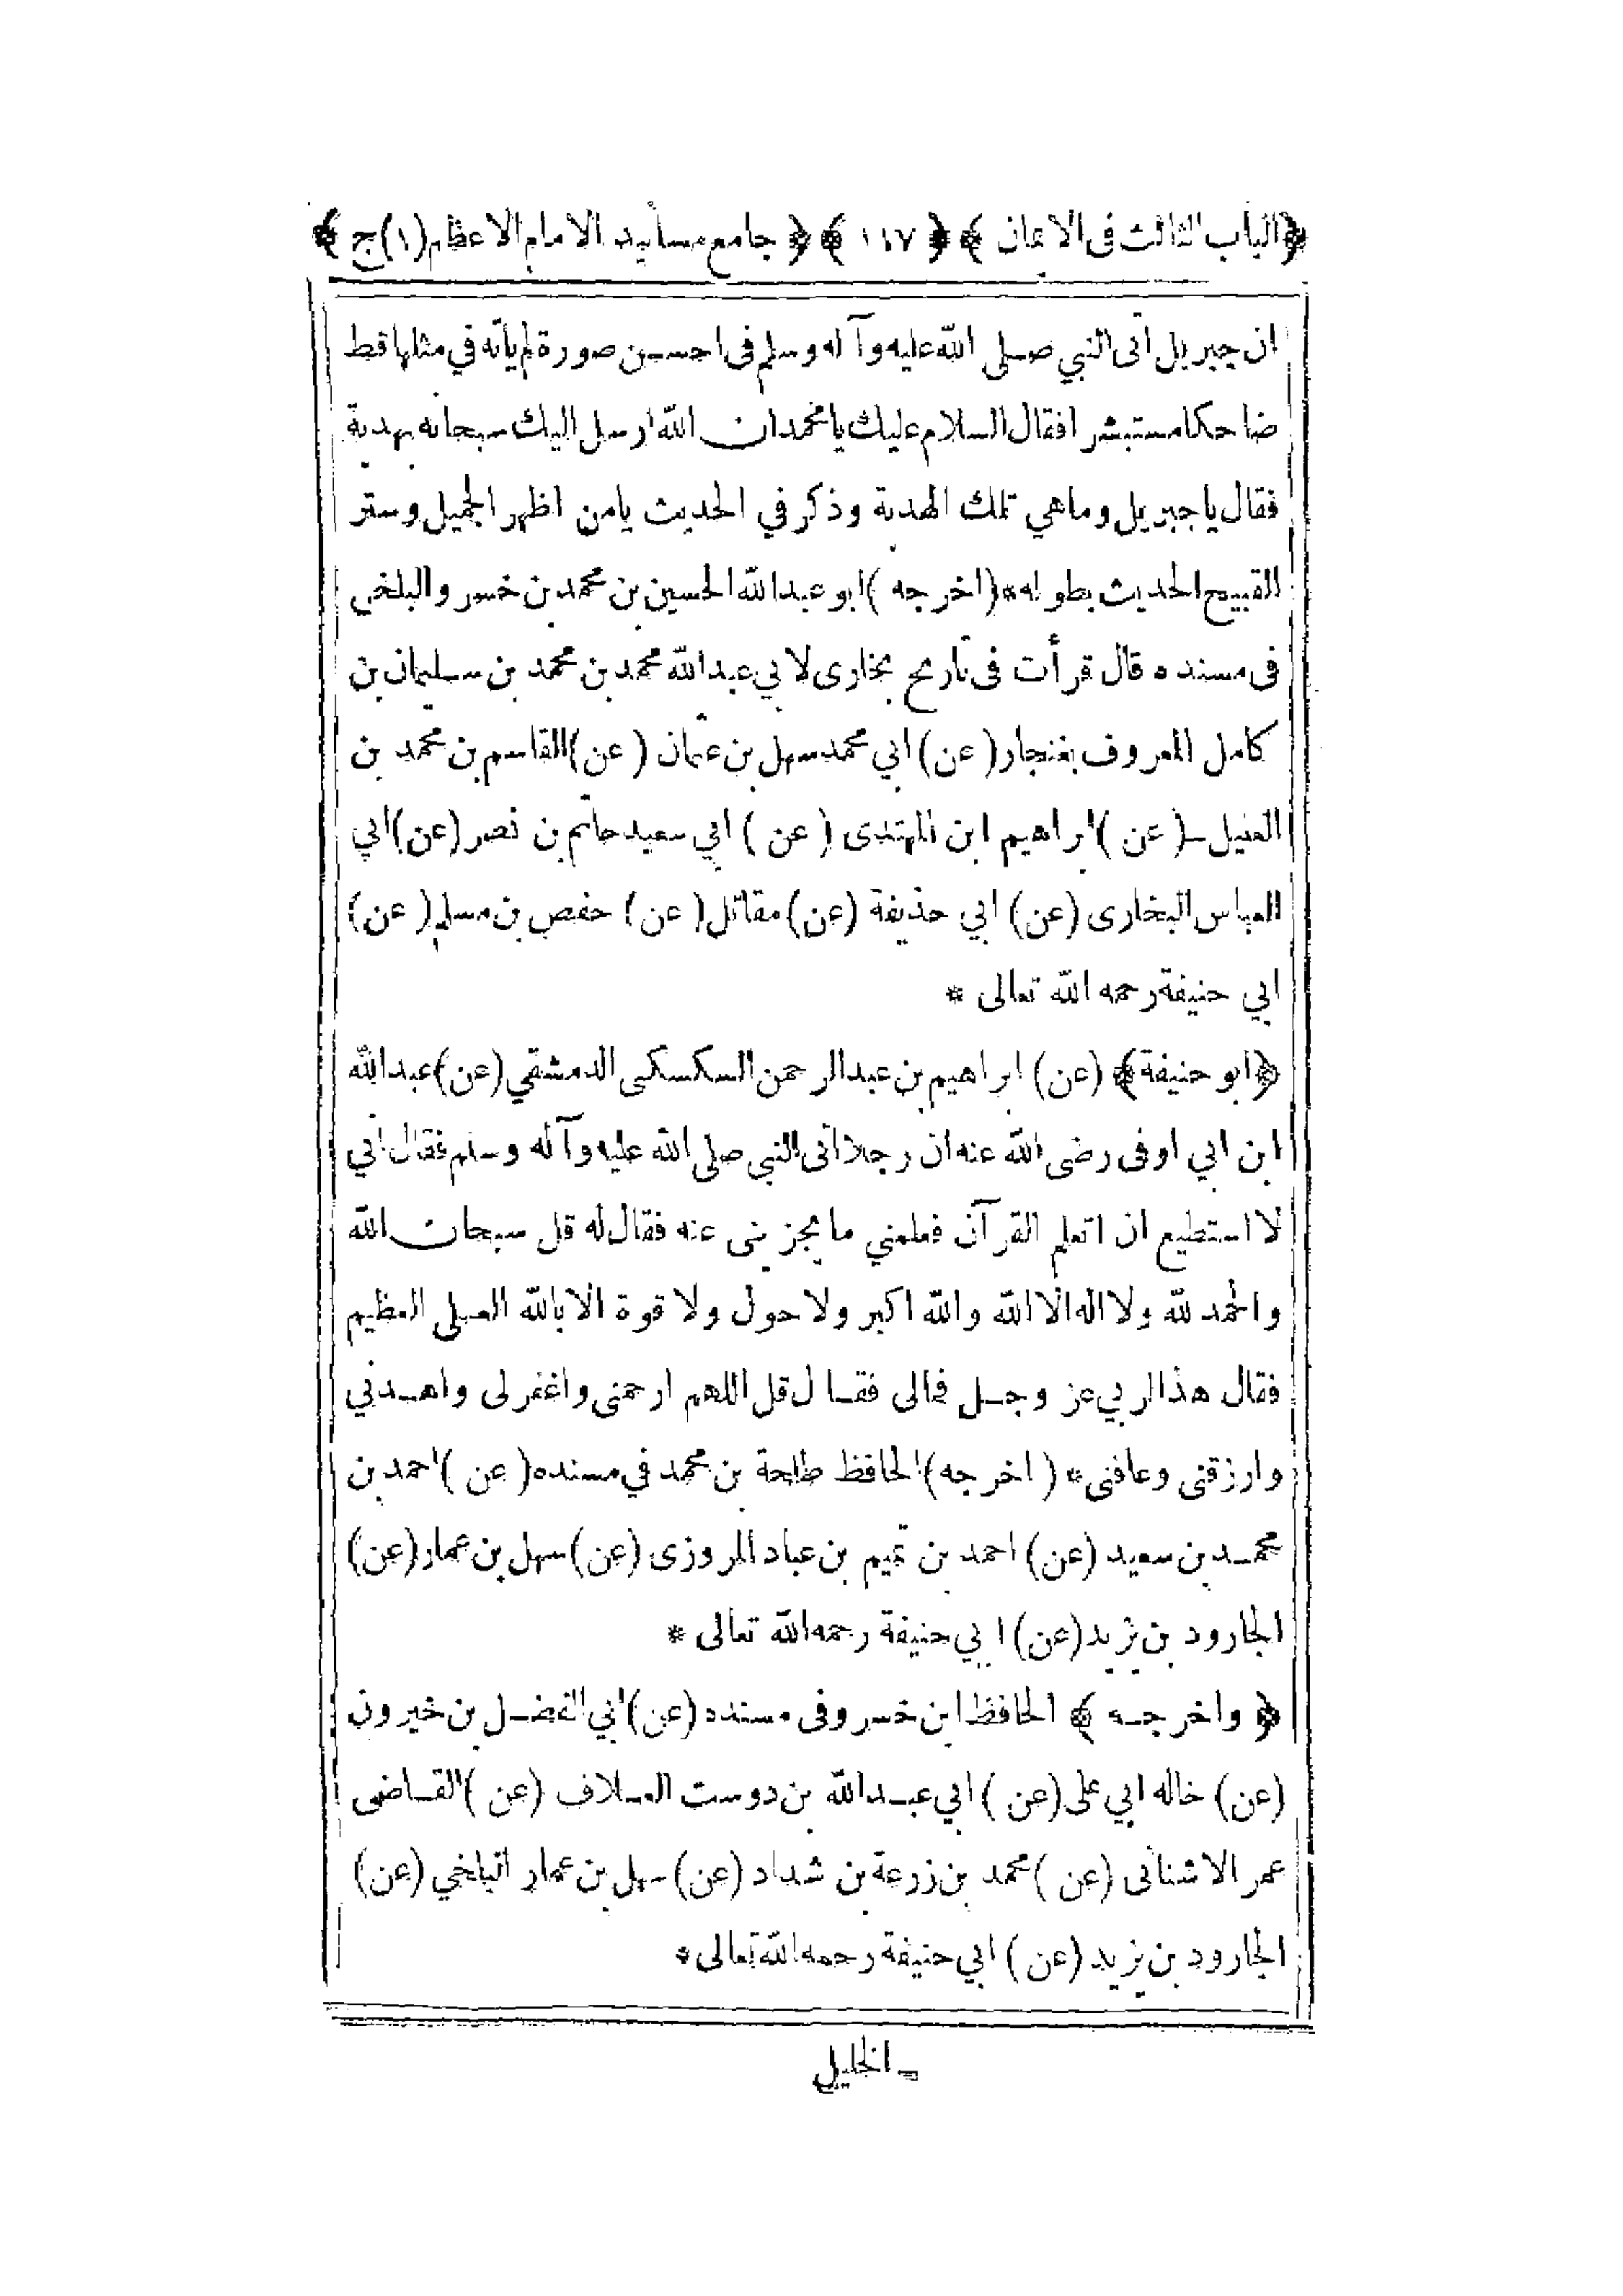 ﴿الباب الثالث فى الايمان﴾ ﴿١١٧﴾ ﴿جامع مسانيد الامام الاعظم (١) ج﴾
ان جبريل أتى النبي صلى الله عليه وآله وسلم فى احسن صورة لم يأته في مثلها قط
ضاحكا مستبشرا فقال السلام عليك يا محمد ان الله ارسل اليك سبحانه بهدية
فقال يا جبريل وما هي تلك الهدية وذكر في الحديث يامن اظهر الجميل وستر
القبيح الحديث بطوله * (اخرجه) ابو عبد الله الحسين بن محمد بن خسرو البلخى
فى مسنده قال قرأت فى تاريخ بخارى لابي عبد الله محمد بن محمد بن سليمان بن
كامل المعروف بغنجار (عن) ابي محمد سهل بن عثمان (عن) القاسم بن محمد بن
(عن) ابراهيم ابن المهتدى (عن) ابي سعيد حاتم بن نصر (عن) ابي
العباس البخارى (عن) ابي حذيفة (عن) مقاتل (عن) حفص بن مسلم (عن)
ابي حنيفة رحمه الله تعالى *
﴿ابو حنيفة﴾ (عن) ابراهيم بن عبد الرحمن السكسكى الدمشقي (عن) عبد الله
ابن ابي اوفى رضى الله عنه ان رجلا اتى النبي صلى الله عليه وآله وسلم فقال اني
لا استطيع ان اتعلم القرآن فعلمني ما يجزينى عنه فقال له قل سبحان الله
والحمد لله ولا اله الا الله والله اكبر ولا حول ولا قوة الا بالله العلى العظيم
فقال هذا لربي عز وجل فمالى فقال قل اللهم ارحمنى واغفر لى واهدني
وارزقنى وعافنى * (اخرجه) الحافظ طلحة بن محمد في مسنده (عن) احمد بن
محمد بن سعيد (عن) احمد بن تميم بن عباد المروزى (عن) سهل بن عمار (عن)
الجارود بن يزيد (عن) ابي حنيفة رحمه الله تعالى *
﴿واخرجه﴾ الحافظ ابن خسرو فى مسنده (عن) ابي الفضل بن خيرون
(عن) خاله ابي على (عن) ابي عبد الله بن دوست العلاف (عن) القاضى
عمر الاشنانى (عن) محمد بن زرعة بن شداد (عن) سهل بن عمار البلخي (عن)
الجارود بن يزيد (عن) ابي حنيفة رحمه الله تعالى *
الخليل